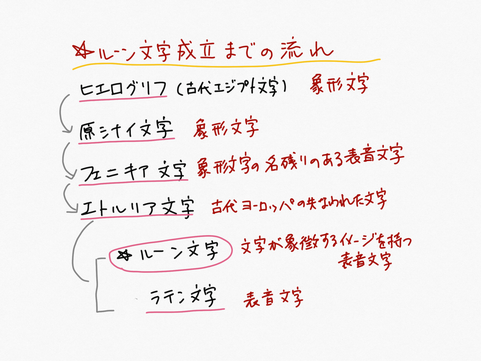 ☆ルーン文字成立までの流れ
ヒエログリフ(古代エジプト文字) 象形文字
原シナイ文字 象形文字
フェニキア文字 象形文字の名残りのある表音文字
エトルリア文字 古代ヨーロッパの失なわれた文字
☆ルーン文字 文字が象徴するイメージを持つ
表音文字
ラテン文字 表音文字